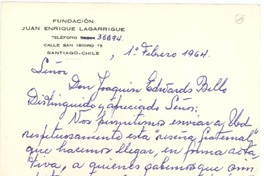 FUNDACIÓN
JUAN ENRIQUE LAGARRIGUE
TELÉFONO 36894
CALLE SAN ISIDRO 75
SANTIAGO-CHILE
1º Febrero 1964.
Señor
Don Joaquin Edwards Bello
Distinguido y apreciado Señor:
Nos permitimos enviar a Ud
respetuosamente esta "reseña fraternal",
que hacemos llegar, en prima
tiva, a quienes sabemos que